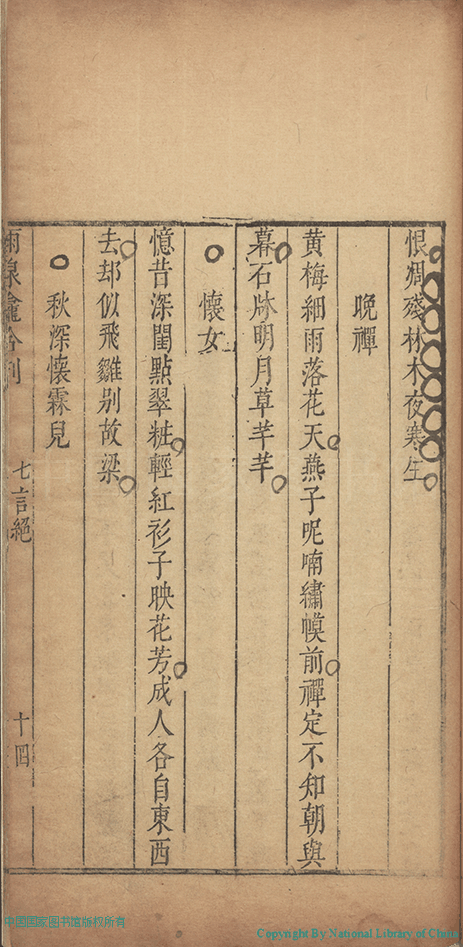 恨凋殘林木夜寒生
晚禪
黄梅細雨落花天燕子呢喃繡幙前禪定不知朝與
暮石牀明月草芊芊
懷女
憶昔深閨點翠粧輕紅衫子映花芳成人各自東西
去却似飛雛别故梁
秋深懷霖兒
雨泉龕合刻 七言絕 十四
中国国家图书馆版权所有
Copyright By National Library of China